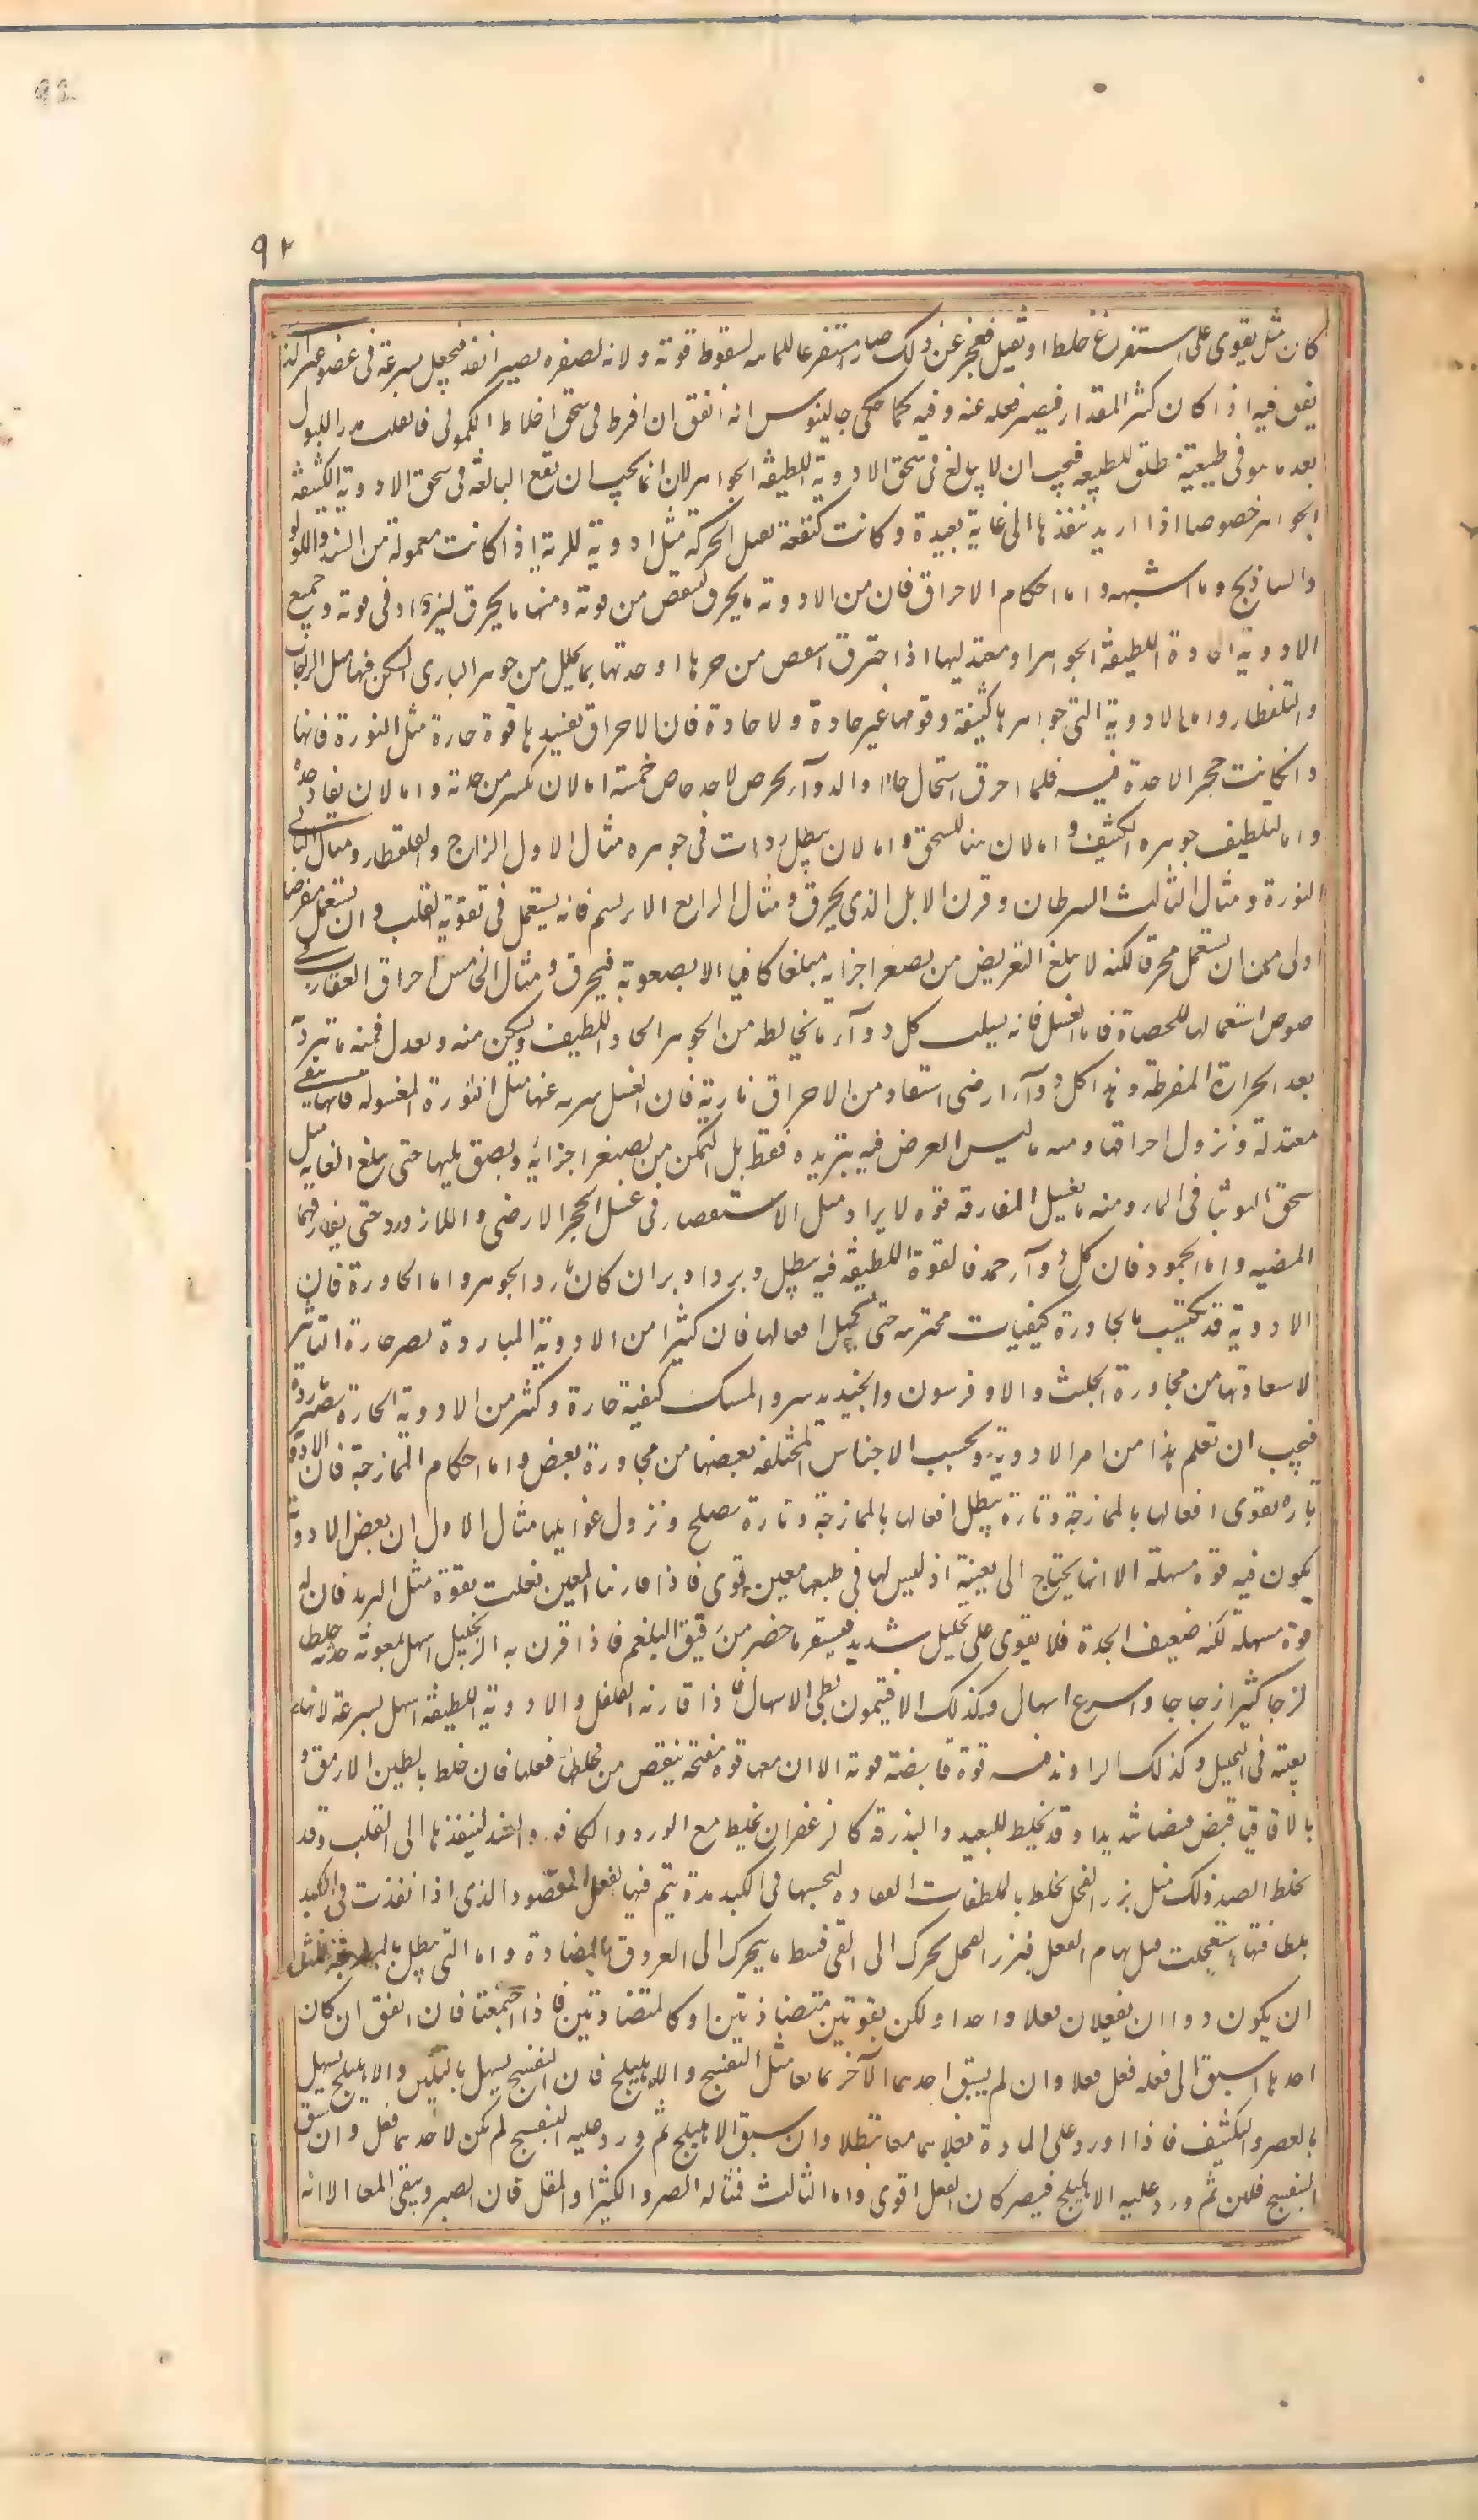 ٩٢
كان مثل يقوى على استفراغ خلط او ثقيل فعجز عن ذلك صار مستفرعا للمائية لسقوط قوته ولانه لصغره يصير انفذ فيحصل بسرعة فى عضو غير الذى
يفق فيه اذا كان كثر المقدار فيصير فعله عنه وفيه كما حكى جالينوس انه اتفق ان افرط فى سحق اخلاط الكمونى فانقلب مدرا للبول
بعد ما هو فى طبيعته مطلق للطبيعه فيجب ان لا يبالغ فى سحق الادوية اللطيفة الجواهر لان انما يجب ان تقع المبالغة فى سحق الادوية الكثيفة
الجواهر خصوصا اذا اريد تنفذها الى غاية بعيدة وكانت كثيفة ثقيل الحركة مثل ادوية للرية اذا كانت معمولة من البسد واللولو
والساذنج وما اشبهه واما احكام الاحراق فان من الادوية ما يحرق لينقص من قوته ومنها ما يحرق ليزداد فى قوته وجميع
الادوية الحادة اللطيفة الجواهر او معتدليها اذا احترق انتقص من حرها او حدتها بما يتحلل من جوهر النارى المستكن فيها مثل الزاجات
والقلقطار واما الادوية التى جواهرها كثيفة وقوتها غير حادة ولا حادة فان الاحراق يفيدها قوة حارة مثل النورة فانها
وان كانت حجر الاحدة فيه فلما احرق استحال حادا والدوآء يحرق لاحد اغراض خمسة اما لان يكسر من حدته واما لان يفاد حدة
واما لتلطيف جوهره الكثيف واما لان يتهيأ للسحق واما لان يبطل رداءت فى جوهره مثال الاول الزاج والقلقطار ومثال الثانى
النورة ومثال الثالث السرطان وقرن الايل الذى يحرق ومثال الرابع الابريسم فانه يستعمل فى تقوية القلب وان يستعمل مقرضا
اولى من ان يستعمل محرقا لكنه لا يبلغ التقريض من تصغر اجزايه مبلغا كافيا الا بصعوبة فيحرق ومثال الخامس احراق العقارب
استعمالها للحصاة فاما الغسل فانه يسلب كل دوآء ما يخالطه من الجوهر الحاد اللطيف ويسكن منه ويعدل فمنه ما تبرد
بعد الحرارة المفرطة وهذا كل دوآء ارضى استفاد من الاحراق نارية فان الغسل يبريه عنها مثل النورة المغسولة فانها تبقى
معتدلة ونزول احراقها ومنه ما ليس الغرض فيه تبريده فقط بل التمكن من تصغر اجزائه وتصقيلها حتى يبلغ الغاية مثل
سحق التوتيا فى الماء ومنه ما يغسل لمفارقة قوة لا يراد مثل الاستقصاء فى غسل الحجر الارمنى واللازورد حتى يفارقهما
المغثية واما الجمود فان كل دوآء جمد فالقوة اللطيفة فيه يبطل ويزداد بردا ان كان بارد الجوهر واما المجاورة فان
الادوية قد تكتسب بالمجاورة كيفيات غريبة حتى تستحيل افعالها فان كثيرا من الادوية الباردة تصير حارة التاثير
لاستفادتها من مجاورة الحلتيت والافربيون والجندبيدستر والمسك كيفية حارة وكثر من الادوية الحارة تصير باردة
فيجب ان تعلم هذا من امر الادوية ويجتنب الاجناس المختلفة بعضها من مجاورة بعض واما احكام الممازجة فان الادوية
تارة تقوى افعالها بالممازجة وتارة يبطل افعالها بالممازجة وتارة تصلح ونزول غوايلها مثال الاول ان بعض الادوية
يكون فيه قوة مسهلة الا انها يحتاج الى معينة اذ ليس لها فى طبعها معين قوى فاذا قارنها المعين فعلت بقوة مثل التربد فان له
قوة مسهلة لكنه ضعيف الحدة فلا يقوى على تحليل شديد فيستفرغ ما حضر من رقيق البلغم فاذا قرن به الزنجبيل اسهل بمعونة حدته خلطا
لزجا كثيرا زجاجيا واسرع اسهاله وكذلك الافتيمون بطئ الاسهال فاذا قارنه الفلفل والادوية اللطيفة اسهل بسرعة لانها
يعينه فى التحليل وكذلك الراوند فيه قوة قابضة قوية الا ان معها قوة مفتحة ينقص من فعلها فان خلط بالطين الارمنى او
بالاقاقيا قبض قبضا شديدا وقد يخلط للتبعيد والبذرقة كالزعفران يخلط مع الورد والكافور والبسد لينفذها الى القلب وقد
يخلط لضد ذلك مثل بزر الفجل يخلط بالملطفات النفاذة ليحبسها فى الكبد مدة يتم فيها الفعل المقصود الذى اذا نفذت فى الكبد
بلطافتها استعجلت قبل تمام الفعل فبزر الفجل يحرك الى القئ فيثبط ما يتحرك الى العروق بالمضادة واما التى يبطل بالممازجة فمثل
ان يكون دواءان يفعلان فعلا واحدا ولكن بقوتين متضادتين او كالمتضادتين فاذا اجتمعتا فان اتفق ان كان
احدهما اسبق الى فعله فعل فعلا وان لم يسبق احدهما الآخر تمانعا مثل البنفسج والاهليلج فان البنفسج يسهل بالتليين والاهليلج يسهل
بالعصر والتكثيف فاذا اورد على المادة فعلاهما معا تبطلا وان سبق الاهليلج ثم ورد عليه البنفسج لم يكن لاحدهما فعل وان سبق
البنفسج فلين ثم ورد عليه الاهليلج فعصر كان الفعل اقوى واما الثالث فمثاله الصبر والكثيرا والمقل فان الصبر وينقى المعا الا انه